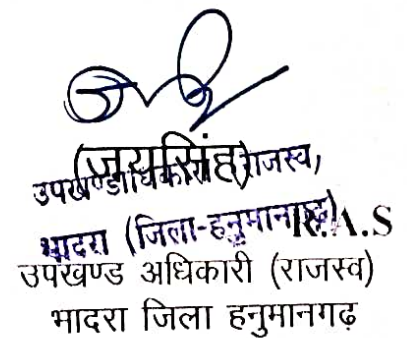 (जयसिंह)
उपखण्डाधिकारी राजस्व,
भादरा (जिला-हनुमानगढ़)
R.A.S
उपखण्ड अधिकारी (राजस्व)
भादरा जिला हनुमानगढ़